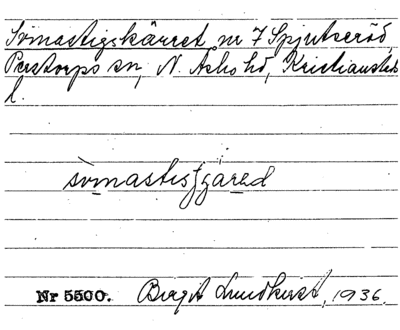 Svinastigskärret nr 7 Spjutseröd
Perstorps sn, N. Åsbo hd, Kristianstads
l.
Nr 5500. Birgit Lundkvist, 1936.